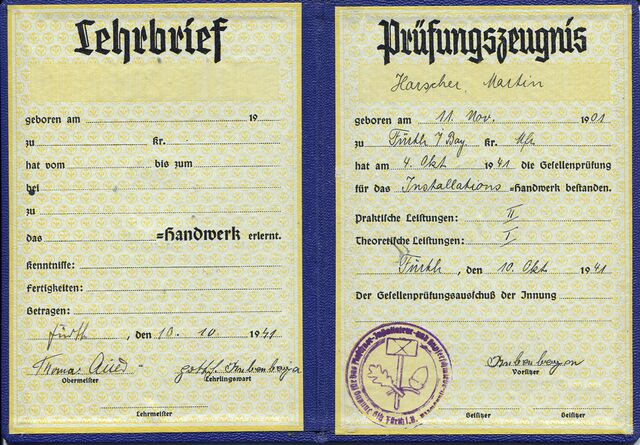 Lehrbrief
geboren am 19
zu Kr.
hat vom bis zum
bei
zu
das =Handwerk erlernt.
Kenntnisse:
Fertigkeiten:
Betragen:
Fürth, den 10. 10. 1941
Thomas
Obermeister Lehrlingswart
Lehrmeister
Prüfungszeugnis
Harscher, Martin
geboren am 11. Nov. 1901
zu Fürth / Bay Kr. Mfr.
hat am 4. Okt 1941 die Gesellenprüfung
für das Installations =Handwerk bestanden.
Praktische Leistungen: II
Theoretische Leistungen: I
Fürth, den 10. Okt 1941
Der Gesellenprüfungsausschuß der Innung
Vorsitzer
Beisitzer Beisitzer